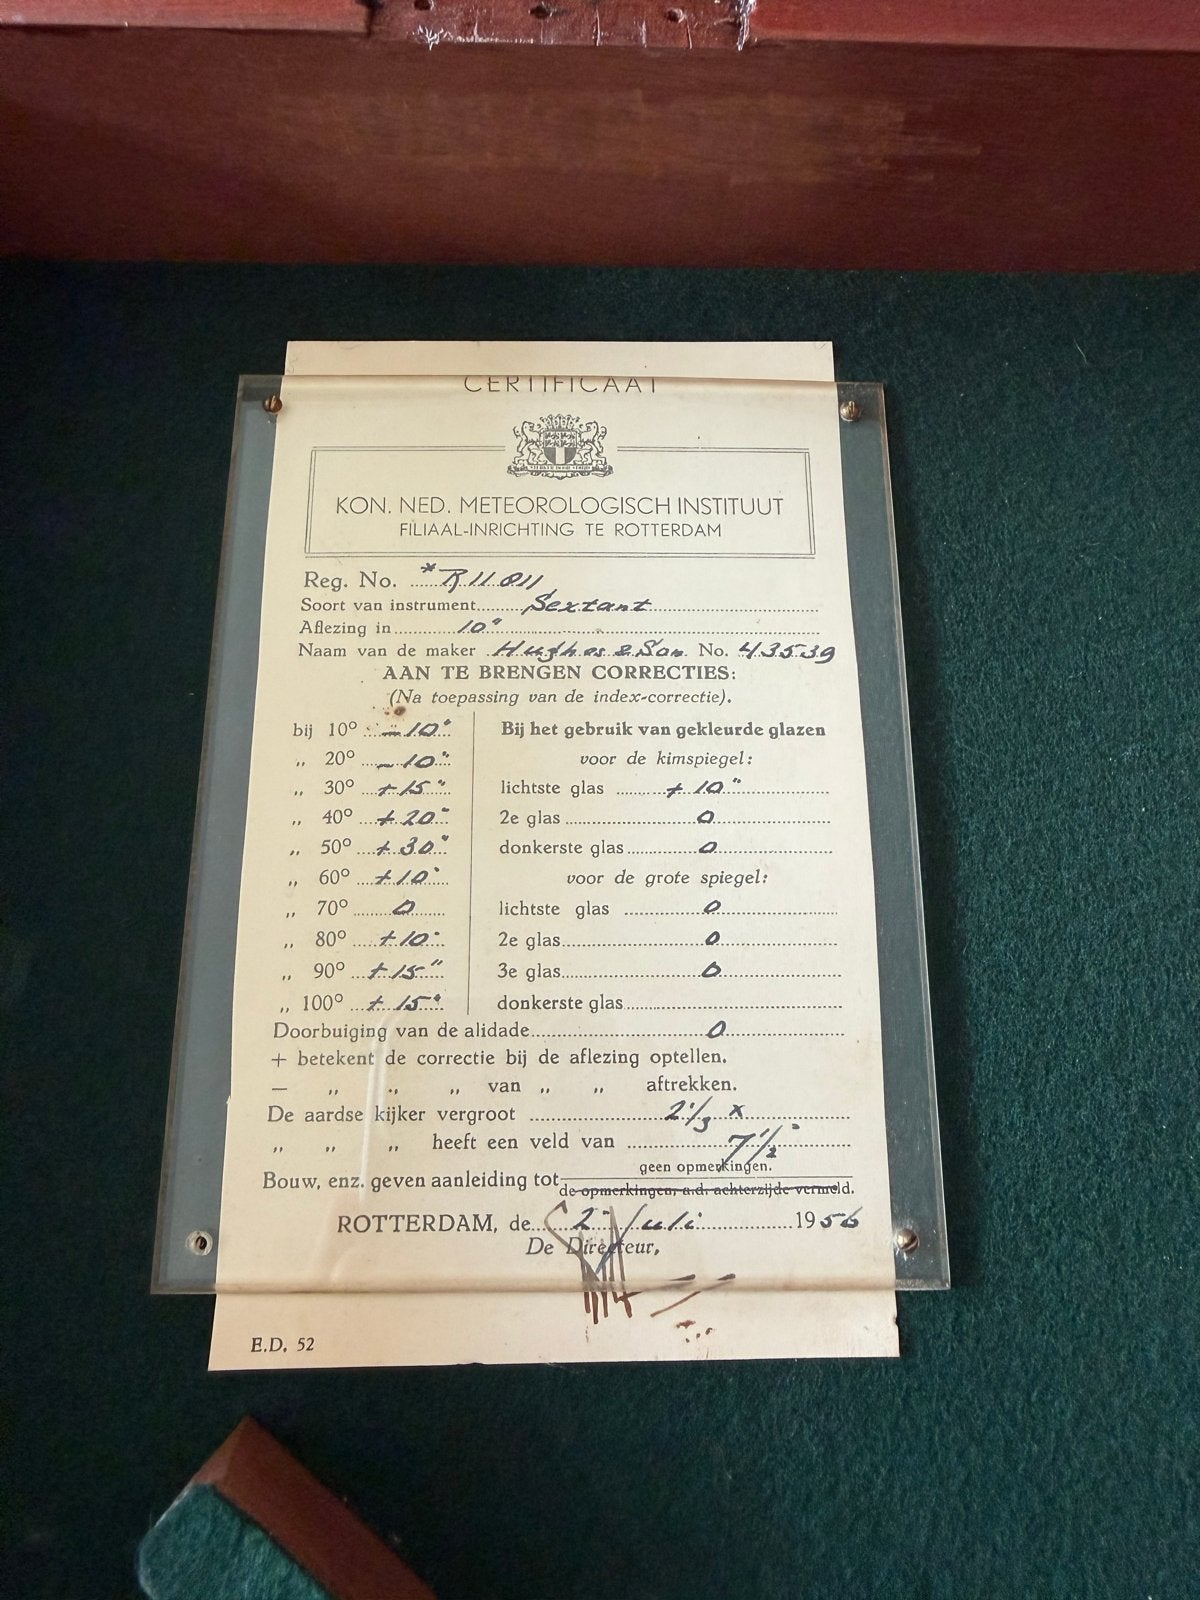 CERTIFICAAT
KON. NED. METEOROLOGISCH INSTITUUT
FILIAAL-INRICHTING TE ROTTERDAM
Reg. No. *R 11 011
Soort van instrument Sextant
Aflezing in 10"
Naam van de maker Hughes & Son No. 43539
AAN TE BRENGEN CORRECTIES:
(Na toepassing van de index-correctie).
bij 10° — 10"
„ 20° — 10"
„ 30° + 15"
„ 40° + 20"
„ 50° + 30"
„ 60° + 10"
„ 70° 0
„ 80° + 10"
„ 90° + 15"
„ 100° + 15"
Bij het gebruik van gekleurde glazen
voor de kimspiegel:
lichtste glas + 10"
2e glas 0
donkerste glas 0
voor de grote spiegel:
lichtste glas 0
2e glas 0
3e glas 0
donkerste glas
Doorbuiging van de alidade 0
+ betekent de correctie bij de aflezing optellen.
— „ „ „ van „ „ aftrekken.
De aardse kijker vergroot 2 1/3 x
„ „ „ heeft een veld van 7 1/2°
Bouw, enz. geven aanleiding tot geen opmerkingen.
de opmerkingen, a.d. achterzijde vermeld.
ROTTERDAM, de 2 Juli 1956
De Directeur,
E.D. 52